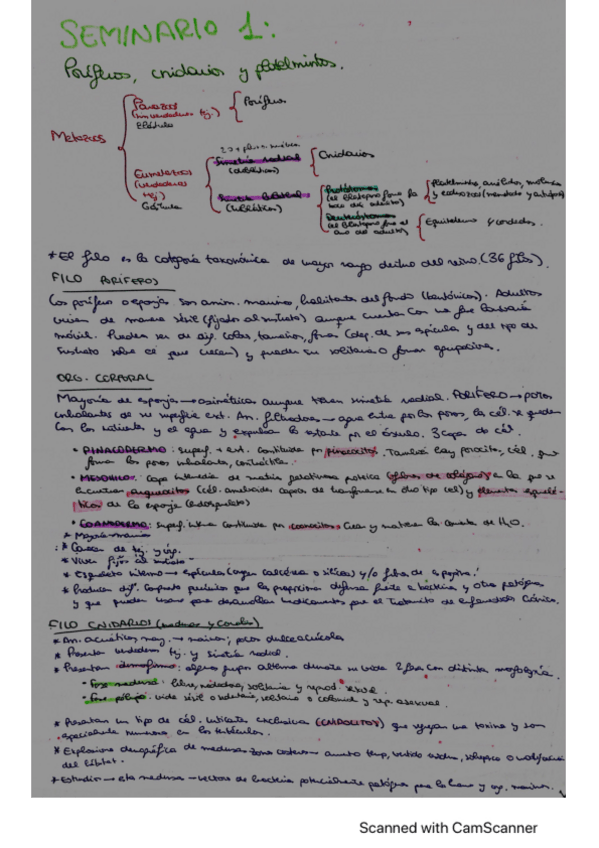 SEMINARIO 1:
Poríferos, cnidarios y platelmintos.
Metazoos
Parazoos
(sin verdaderos tej.)
Poríferos
Eumetazoos
(verdaderos
tej.)
Gástrula
Simetría radial
(diblástica)
Cnidarios
Simetría bilateral
(triblástica)
Protóstomos
(el blastoporo forma la
boca del adulto)
Platelmintos, anélidos, moluscos
y ecdisozoos (nematodos y artrópodos)
Deuteróstomos
(el blastoporo forma el
ano del adulto)
Equinodermo y cordados.
* El filo es la categoría taxonómica de mayor rango dentro del reino. (36 filos).
FILO PORÍFEROS
Los poríferos o esponjas son anim. marinos, habitantes del fondo (bentónicos). Adultos
viven de manera sésil (fijados al sustrato) aunque cuentan con una fase larvaria
móvil. Pueden ser de dif. colores, tamaños, formas (dep. de sus espículas y del tipo de
sustrato sobre el que crecen) y pueden ser solitarios o formar agrupaciones.
ORG. CORPORAL
Mayoría de esponjas → asimétricas aunque tienen simetría radial. PORÍFERO → poros
inhalantes de su superficie ext. An. filtradores → agua entra por los poros, las cél. se quedan
con los nutrientes y el agua y expulsan lo restante por el ósculo. 3 capas de cél.
• PINACODERMO: superf. + ext. constituida por pinacocitos. También hay porocitos, cél. que
forman los poros inhalantes, contráctiles.
• MESOHILO: capa intermedia de matriz gelatinosa proteica (fibras de colágeno) en la que se
encuentran arqueocitos (cél. ameboides capaces de transformarse en otro tipo cel) y elementos esquelé-
ticos de la esponja (endoesqueleto)
• COANODERMO: superf. interna constituida por coanocitos. Crean y mantienen la corriente de H₂O.
* Mayoría marinos
* Carecen de tej. y órg.
* Viven fijos al sustrato
* Esqueleto interno → espículas (origen calcáreo o silíceo) y/o fibras de espongina.
* Producen dif. compuestos químicos que les proporcionan defensa frente a bacterias y otros patógenos
y que pueden usarse para desarrollar medicamentos para el tratamiento de enfermedades crónicas.
FILO CNIDARIOS (medusas y corales)
* An. acuáticos may. → marinos; pocos dulceacuícolas
* Presentan verdaderos tej. y simetría radial.
* Presentan dimorfismo: algunos grupos alternan durante su vida 2 fases con distinta morfología.
• Fase medusa: libre, nadadora, solitaria y reprod. sexual.
• Fase pólipo: vida sésil o sedentaria, solitaria o colonial y rep. asexual.
* Presentan un tipo de cél. urticantes exclusivas (CNIDOCITOS) que inyectan una toxina y son
especialmente numerosas en los tentáculos.
* Explosiones demográficas de medusas zonas costeras → aumento temp, vertidos
del hábitat.
* Estudios → estas medusas → vectores de bacterias potencialmente patógenas para los humanos y org. marinos.
Scanned with CamScanner